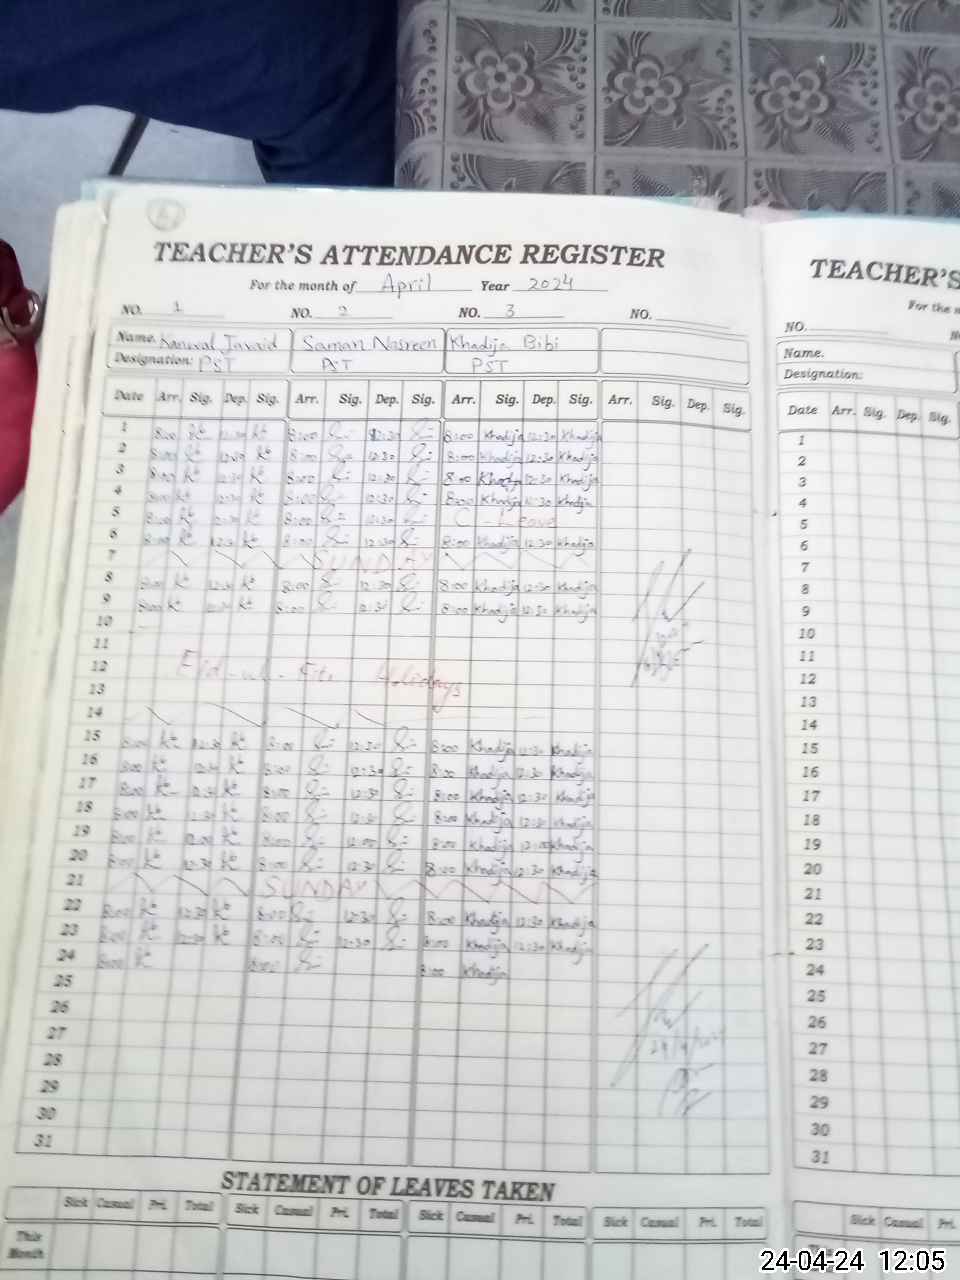 TEACHER'S ATTENDANCE REGISTER
For the month of April Year 2024
NO. 1 NO. 2 NO. 3 NO.
Name. Kanwal Javaid Saman Nasreen Khadija Bibi
Designation: PST PST PST
Date Arr. Sig. Dep. Sig. Arr. Sig. Dep. Sig. Arr. Sig. Dep. Sig. Arr. Sig. Dep. Sig.
1 8:00 12:30 8:00 12:30 8:00 Khadija 12:30 Khadija
2 8:00 12:30 8:00 12:30 8:00 Khadija 12:30 Khadija
3 8:00 12:30 8:00 12:30 8:00 Khadija 12:30 Khadija
4 8:00 12:30 8:00 12:30 8:00 Khadija 12:30 Khadija
5 8:00 12:30 8:00 12:30 C-Leave
6 8:00 12:30 8:00 12:30 8:00 Khadija 12:30 Khadija
7 SUNDAY
8 8:00 12:30 8:00 12:30 8:00 Khadija 12:30 Khadija
9 8:00 12:30 8:00 12:30 8:00 Khadija 12:30 Khadija
10
11
12 Eid-ul-Fitr Holidays
13
14
15 8:00 12:30 8:00 12:30 8:00 Khadija 12:30 Khadija
16 8:00 12:30 8:00 12:30 8:00 Khadija 12:30 Khadija
17 8:00 12:30 8:00 12:30 8:00 Khadija 12:30 Khadija
18 8:00 12:30 8:00 12:30 8:00 Khadija 12:30 Khadija
19 8:00 12:00 8:00 12:00 8:00 Khadija 12:00 Khadija
20 8:00 12:30 8:00 12:30 8:00 Khadija 12:30 Khadija
21 SUNDAY
22 8:00 12:30 8:00 12:30 8:00 Khadija 12:30 Khadija
23 8:00 12:30 8:00 12:30 8:00 Khadija 12:30 Khadija
24 8:00 8:00 8:00 Khadija
25
26
27
28
29
30
31
STATEMENT OF LEAVES TAKEN
Sick Casual Pri. Total Sick Casual Pri. Total Sick Casual Pri. Total Sick Casual Pri. Total
This
Month
TEACHER'S
For the
NO.
Name.
Designation:
Date Arr. Sig. Dep. Sig.
1
2
3
4
5
6
7
8
9
10
11
12
13
14
15
16
17
18
19
20
21
22
23
24
25
26
27
28
29
30
31
Sick Casual Pri.
24-04-24 12:05